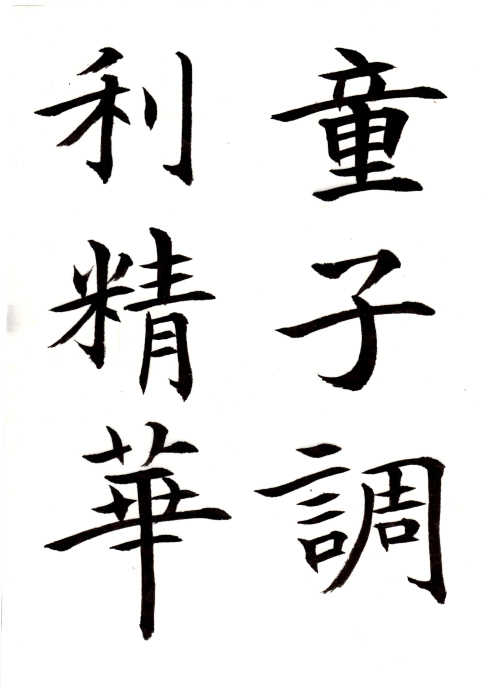 童子調
利精華